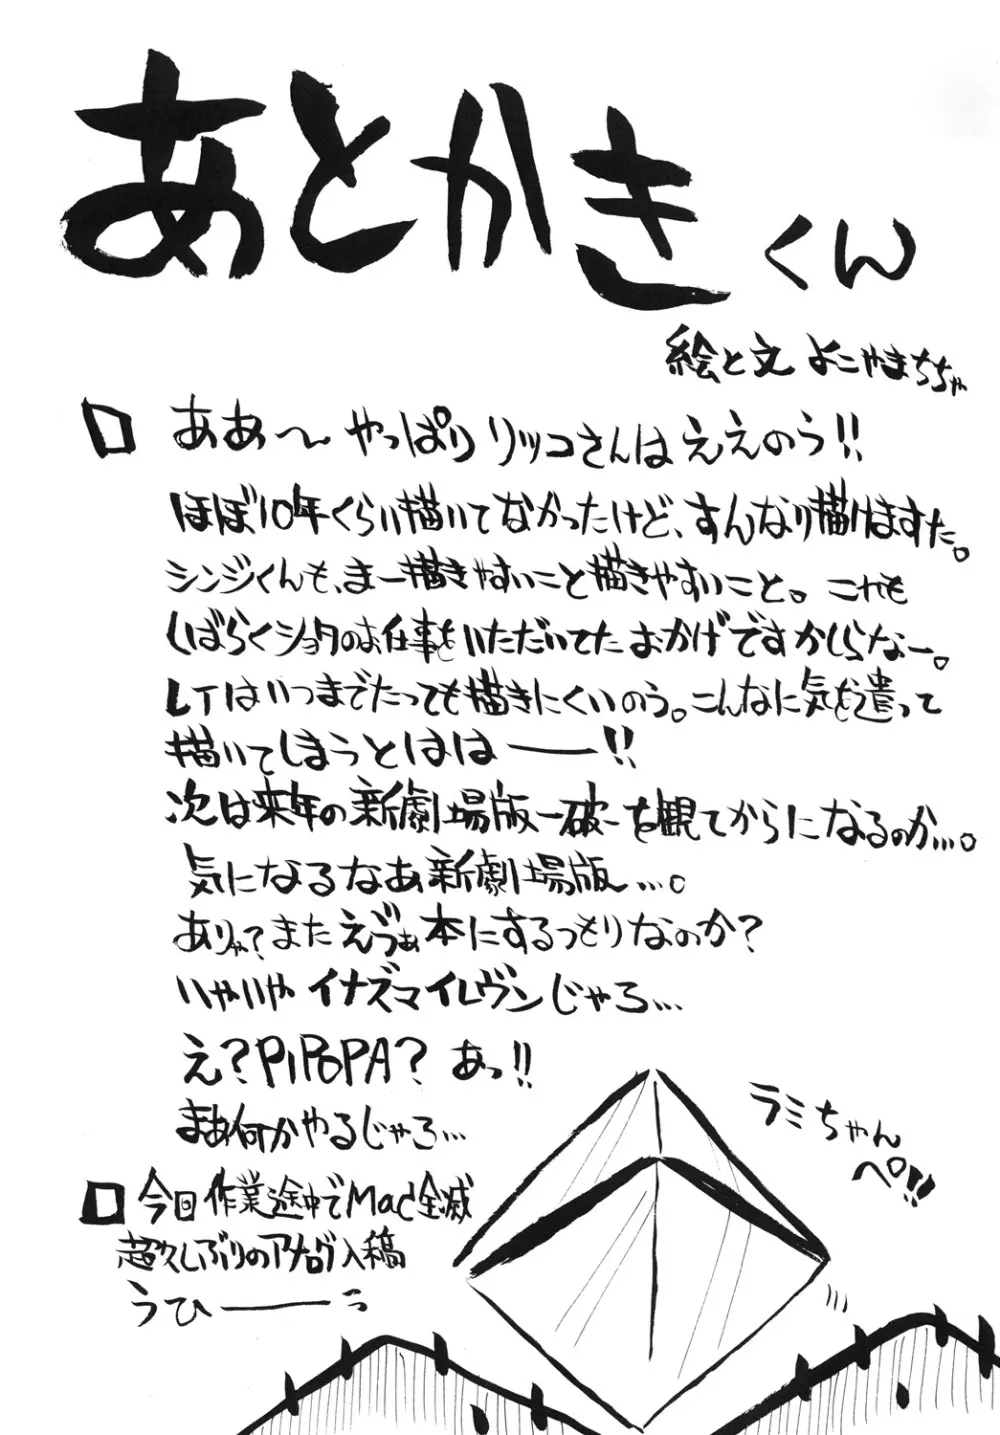 あとかきくん
絵と文 よこやまちちゃ
ロ ああ〜やっぱりリッコさんはええのう!!
ほぼ10年くらい描いてなかったけど、すんなり描けますた。
シンジくんも、まー描きやすいこと描きやすいこと。これも
しばらくショタのお仕事をいただいてたおかげですかしらなー。
レイはいつまでたっても描きにくいのう。こんなに気を遣って
描いてしまうとはは――!!
次は来年の新劇場版-破-を観てからになるのか…。
気になるなあ新劇場版…。
ありゃ?またえづぁ本にするつもりなのか?
いやいやイナズマイレヴンじゃろ…
え?PiPoPA?あっ!!
まあ何かやるじゃろ…
ロ 今回作業途中でMac全滅
超久しぶりのアナログ入稿
うひ――っ
ラミちゃん
ペ!!